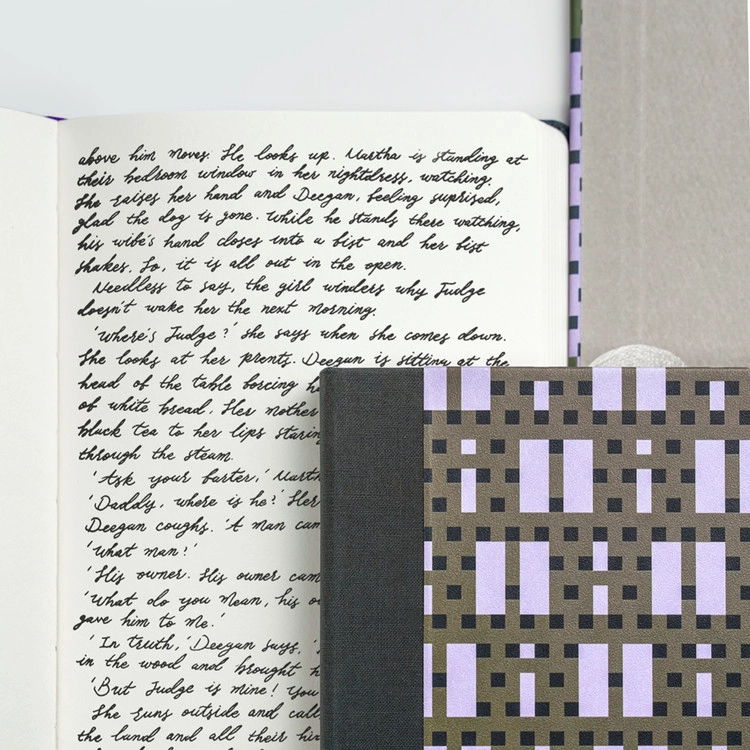 above him moves. He looks up. Martha is standing at
their bedroom window in her nightdress, watching.
She raises her hand and Deegan, feeling suprised,
glad the dog is gone. While he stands there watching,
his wife's hand closes into a fist and her fist
shakes. So, it is all out in the open.
Needless to say, the girl winders why Judge
doesn't wake her the next morning.
'Where's Judge?' she says when she comes down.
She looks at her prents. Deegan is sitting at the
head of the table forcing
of white bread. Her mother
black tea to her lips
through the steam.
'Ask your farter,'
'Daddy, where is he?' Her
Deegan coughs. 'A man
'What man?'
'His owner. His owner
'What do you mean, his
gave him to me.'
'In truth,' Deegan says,
in the wood and brought
'But Judge is mine! You
She runs outside and
the land and all their